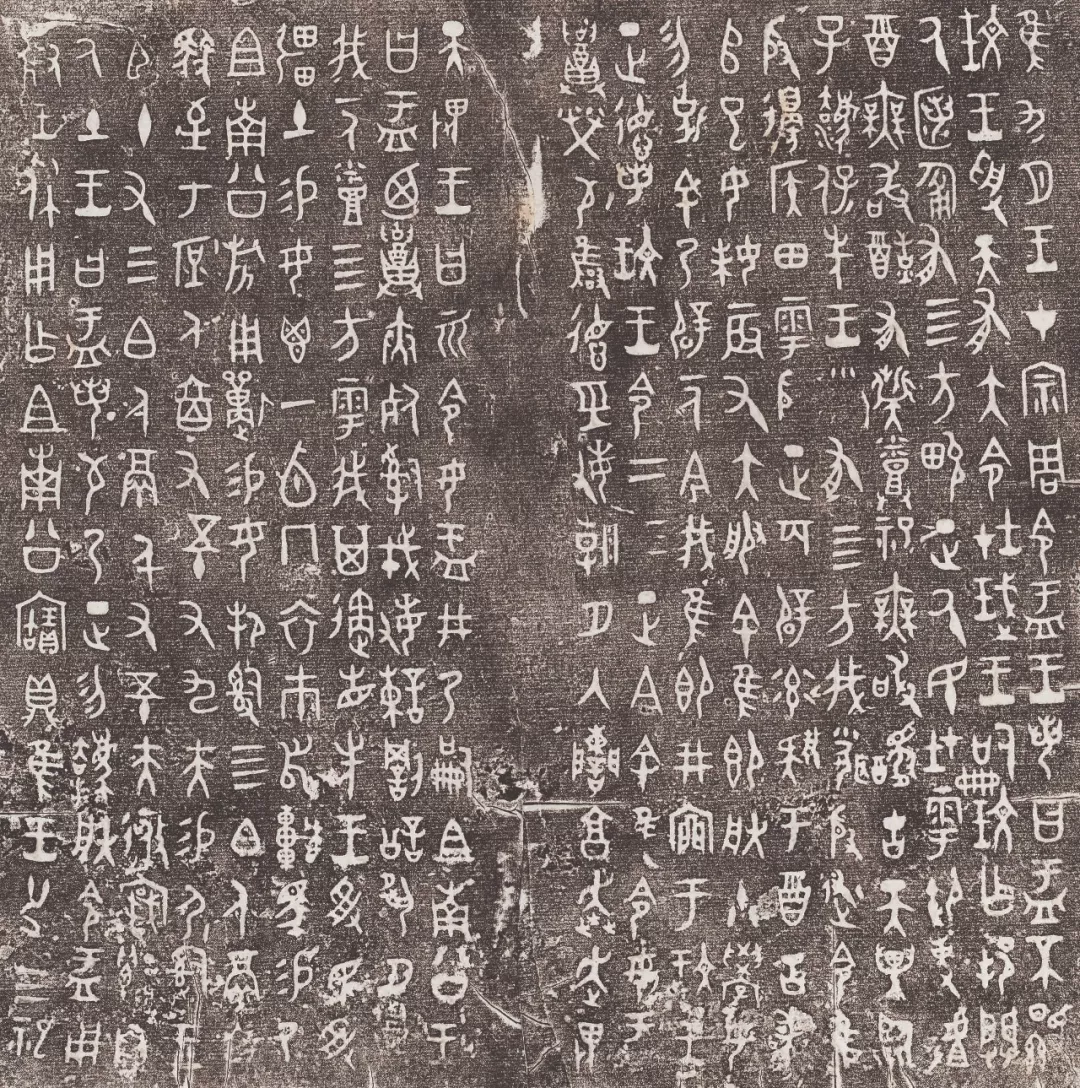 隹九月王才宗周令盂王若曰盂不顯
玟王受天有大令在珷王嗣玟乍邦闢
厥匿匍有四方畯正厥民在雩御事䖒
酉無敢酖有祡烝祀無敢擾古天異臨
子法保先王有四方我聞殷述令隹
殷邊侯田雩殷正百辟率肄于酉古喪
𠂤巳女妹辰又大服余隹即朕小學女
勿剋余乃辟一人今我隹即井廩于玟王
正德若玟王令二三正今余隹令女盂
召榮敬雍德經敏朝夕入諫享奔走畏
天畏王曰而令女盂井乃嗣且南公王
曰盂廼召夾死司戎敏諫罰訟夙夕召
我一人烝四方雩我其遹省先王受民受
疆土易女鬯一卣冂衣巿舄車馬易乃
且南公旂用狩易女邦司四白人鬲自
馭至于庶人六百又五十又九夫易尸司
王臣十又三白人鬲千又五十夫遷自
厥土王曰盂若敬乃正勿灋朕令盂用
對王休用乍且南公寶鼎隹王廿又三祀